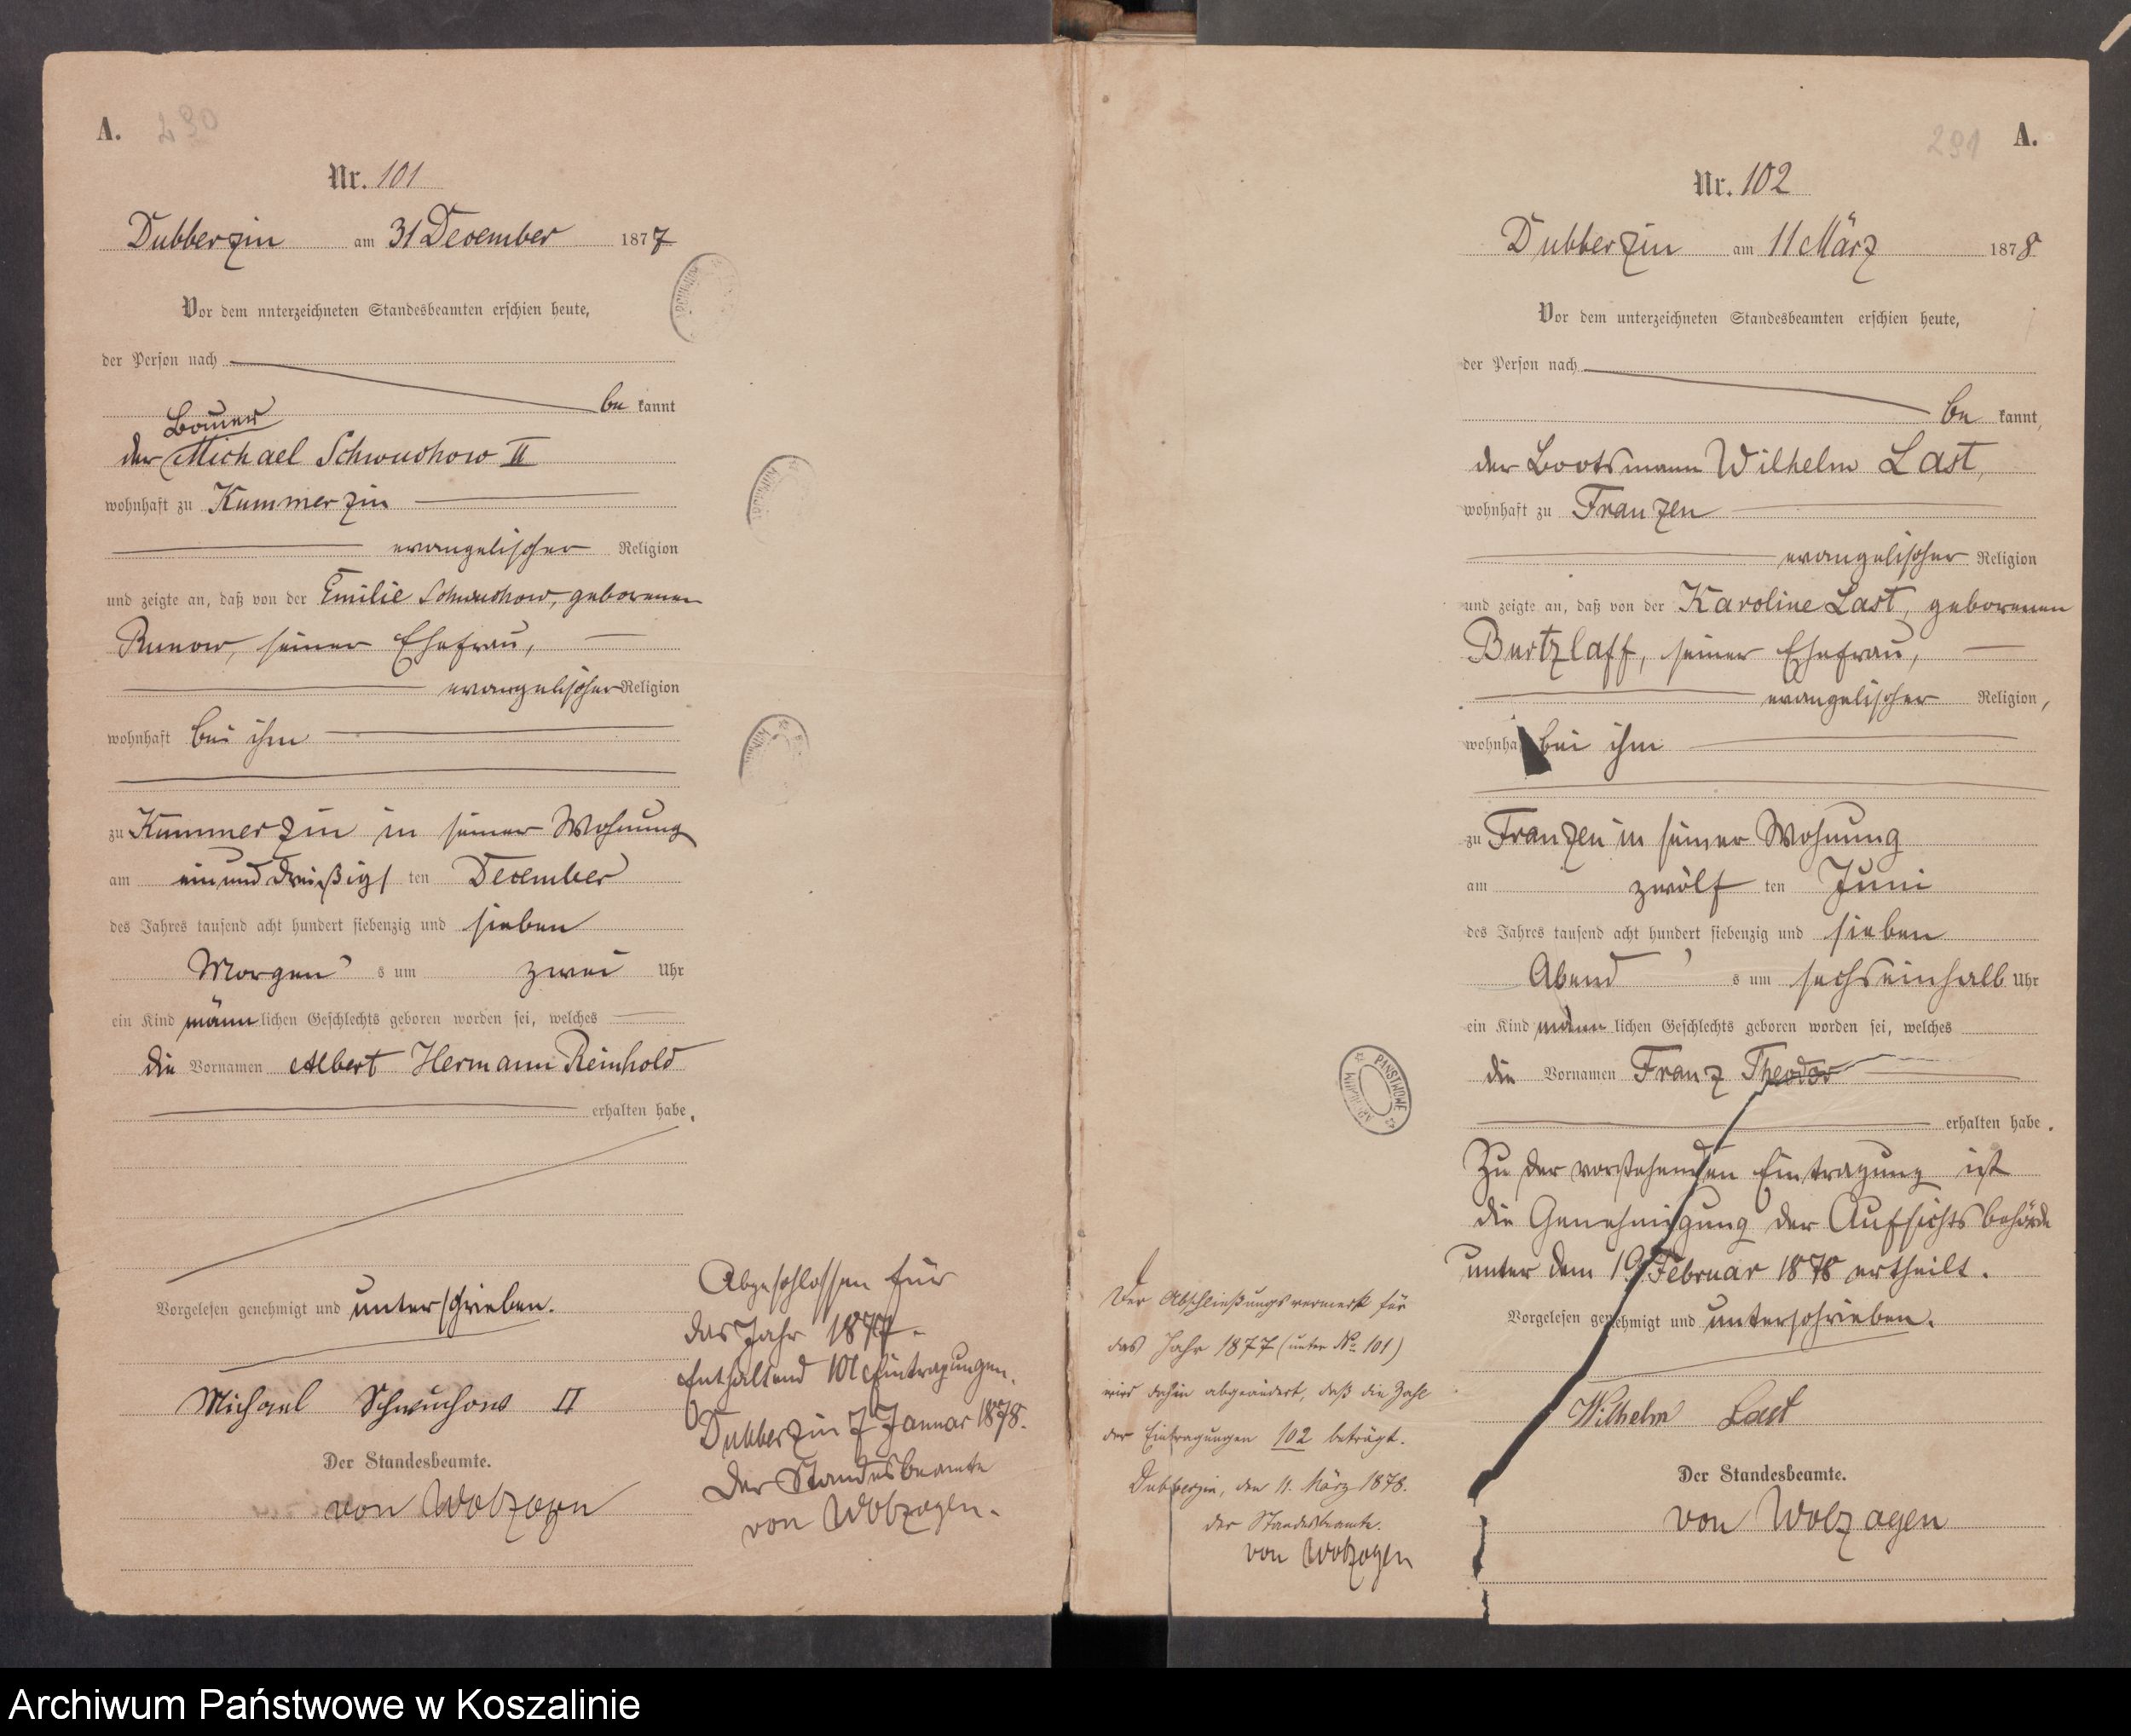 A. 290
Nr. 101
Dubberzin am 31 December 1877
Vor dem unterzeichneten Standesbeamten erschien heute,
der Person nach
be kannt
Bauer
der Michael Schwuchow II
wohnhaft zu Kummerzin
evangelischer Religion
und zeigte an, daß von der Emilie Schwuchow, geborenen
Runow, seiner Ehefrau,
evangelischer Religion
wohnhaft bei ihm
zu Kummerzin in seiner Wohnung
am einunddreißigs ten December
des Jahres tausend acht hundert siebenzig und sieben
Morgen s um zwei Uhr
ein Kind männ lichen Geschlechts geboren worden sei, welches
die Vornamen Albert Hermann Reinhold
erhalten habe.
Vorgelesen genehmigt und unterschrieben.
Michael Schwuchow II
Der Standesbeamte.
von Wolzogen
Abgeschlossen für
das Jahr 1877.
Enthaltend 101 Eintragungen.
Dubberzin 7 Januar 1878.
Der Standesbeamte
von Wolzogen.
Der Abschließungsvermerk für
das Jahr 1877 (unter No 101)
wird dahin abgeändert, daß die Zahl
der Eintragungen 102 beträgt.
Dubberzin, den 11. März 1878.
der Standesbeamte.
von Wolzogen
291 A.
Nr. 102
Dubberzin am 11 März 1878
Vor dem unterzeichneten Standesbeamten erschien heute,
der Person nach
be kannt,
der Bootsmann Wilhelm Last,
wohnhaft zu Franzen
evangelischer Religion
und zeigte an, daß von der Karoline Last, geborenen
Burtzlaff, seiner Ehefrau,
evangelischer Religion,
wohnha bei ihm
zu Franzen in seiner Wohnung
am zwölf ten Juni
des Jahres tausend acht hundert siebenzig und sieben
Abend s um sechseinhalb Uhr
ein Kind männ lichen Geschlechts geboren worden sei, welches
die Vornamen Franz Theodor
erhalten habe.
Zu der vorstehenden Eintragung ist
die Genehmigung der Aufsichtsbehörde
unter dem 19 Februar 1878 ertheilt.
Vorgelesen genehmigt und unterschrieben.
Wilhelm Last
Der Standesbeamte.
von Wolzogen
PAŃSTWOWE
Archiwum Państwowe w Koszalinie